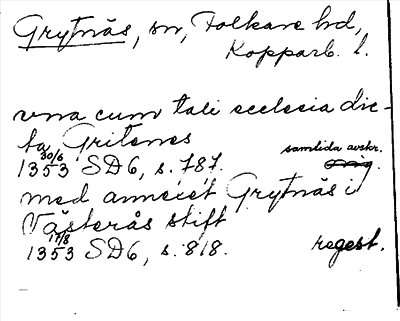 Grytnäs, sn, Folkare hd,
Kopparb. l.
vna cum tali ecclesia dic-
ta Gritenes
samtida avskr.
30/6 1353 SD6, s. 787.
med annexet Grytnäs i
Västerås stift
17/8 1353 SD6, s. 818. regest.